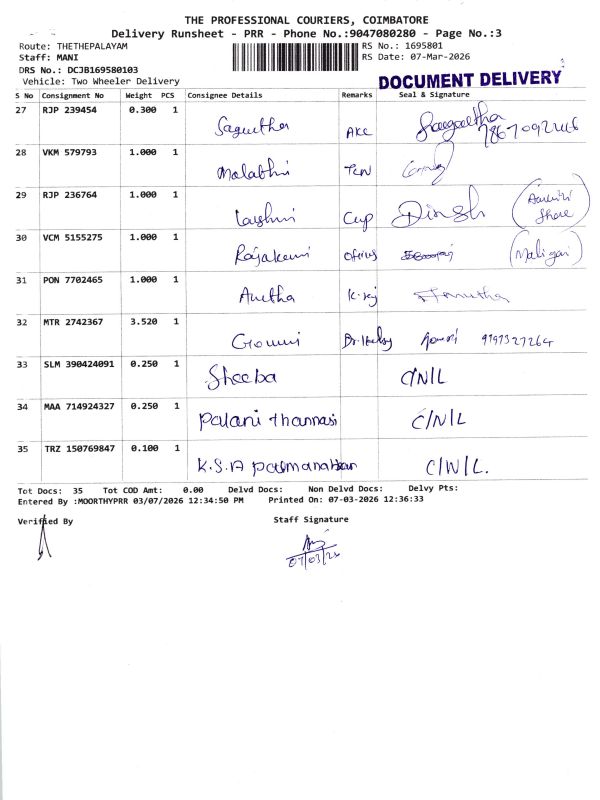 THE PROFESSIONAL COURIERS, COIMBATORE
Delivery Runsheet - PRR - Phone No.:9047080280 - Page No.:3
Route: THETHEPALAYAM
RS No.: 1695801
Staff: MANI
RS Date: 07-Mar-2026
DRS No.: DCJB169580103
Vehicle: Two Wheeler Delivery
DOCUMENT DELIVERY
S No Consignment No Weight PCS Consignee Details Remarks Seal & Signature
27 RJP 239454 0.300 1
28 VKM 579793 1.000 1
29 RJP 236764 1.000 1 Cup Dinesh
30 VCM 5155275 1.000 1
31 PON 7702465 1.000 1 Anitha
32 MTR 2742367 3.520 1 Gowri 9797327264
33 SLM 390424091 0.250 1 Sheeba C/N/L
34 MAA 714924327 0.250 1 Palani thannasi C/N/L
35 TRZ 150769847 0.100 1 K.S.A Padmanaban C/N/L.
Tot Docs: 35 Tot COD Amt: 0.00 Delvd Docs: Non Delvd Docs: Delvy Pts:
Entered By :MOORTHYPRR 03/07/2026 12:34:50 PM Printed On: 07-03-2026 12:36:33
Verified By
Staff Signature
07/03/26